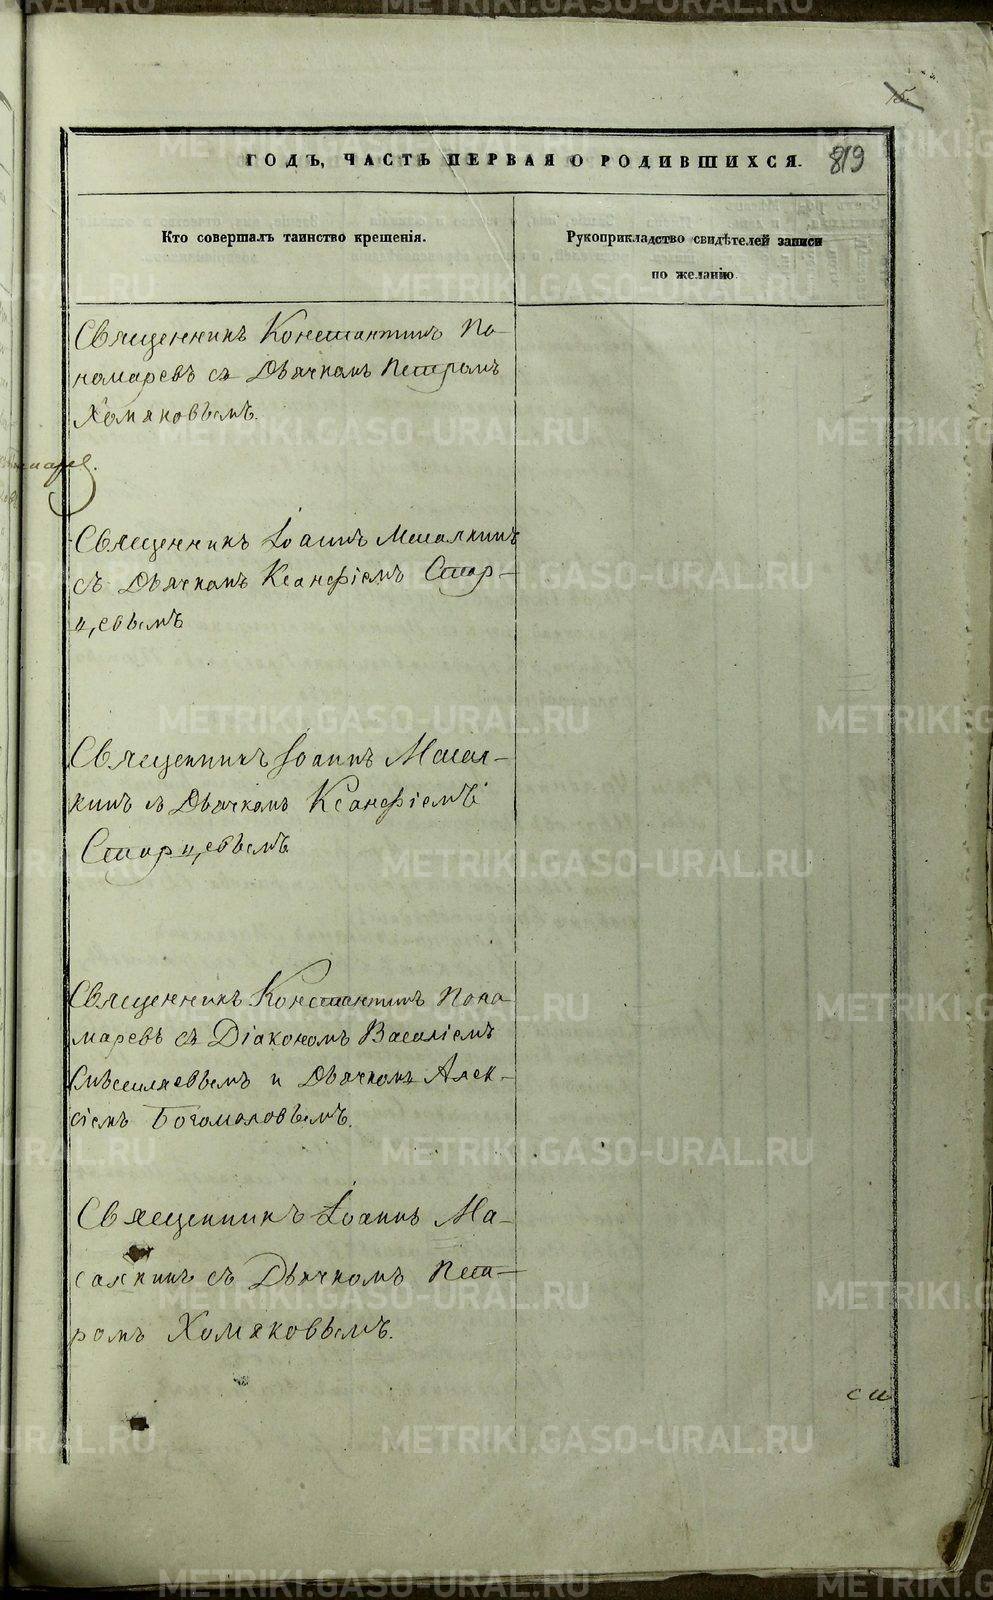 15.
819
ГОДЪ, ЧАСТЬ ПЕРВАЯ О РОДИВШИХСЯ.
Кто совершалъ таинство крещенія.
Рукоприкладство свидѣтелей записи
по желанію.
Священникъ Константинъ По-
номаревъ съ Дьячкомъ Петромъ
Хомяковымъ.
Священникъ Іоаннъ Масалкинъ
съ Дьячкомъ Ксанфіемъ Стар-
цевымъ
Священникъ Іоаннъ Масал-
кинъ съ Дьячкомъ Ксанфіемъ
Старцевымъ
Священникъ Константинъ Поно
маревъ съ Діакономъ Василіемъ
и Дьячкомъ Алек-
сіемъ Богомоловымъ.
Священникъ Іоаннъ Ма-
салкинъ съ Дьячкомъ Пет-
ромъ Хомяковымъ.
METRIKI.GASO-URAL.RU